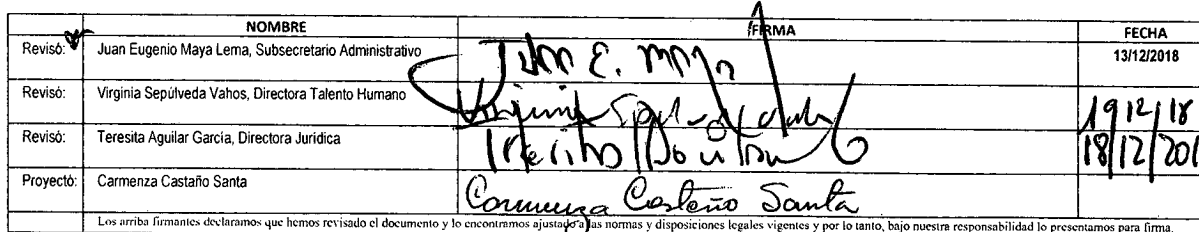 NOMBRE FIRMA FECHA
Revisó: Juan Eugenio Maya Lema, Subsecretario Administrativo Juan E. Maya 13/12/2018
Revisó: Virginia Sepúlveda Vahos, Directora Talento Humano Virginia 19/12/18
Revisó: Teresita Aguilar García, Directora Jurídica 18/12/201
Proyectó: Carmenza Castaño Santa Carmenza Castaño Santa
Los arriba firmantes declaramos que hemos revisado el documento y lo encontramos ajustado a las normas y disposiciones legales vigentes y por lo tanto, bajo nuestra responsabilidad lo presentamos para firma.